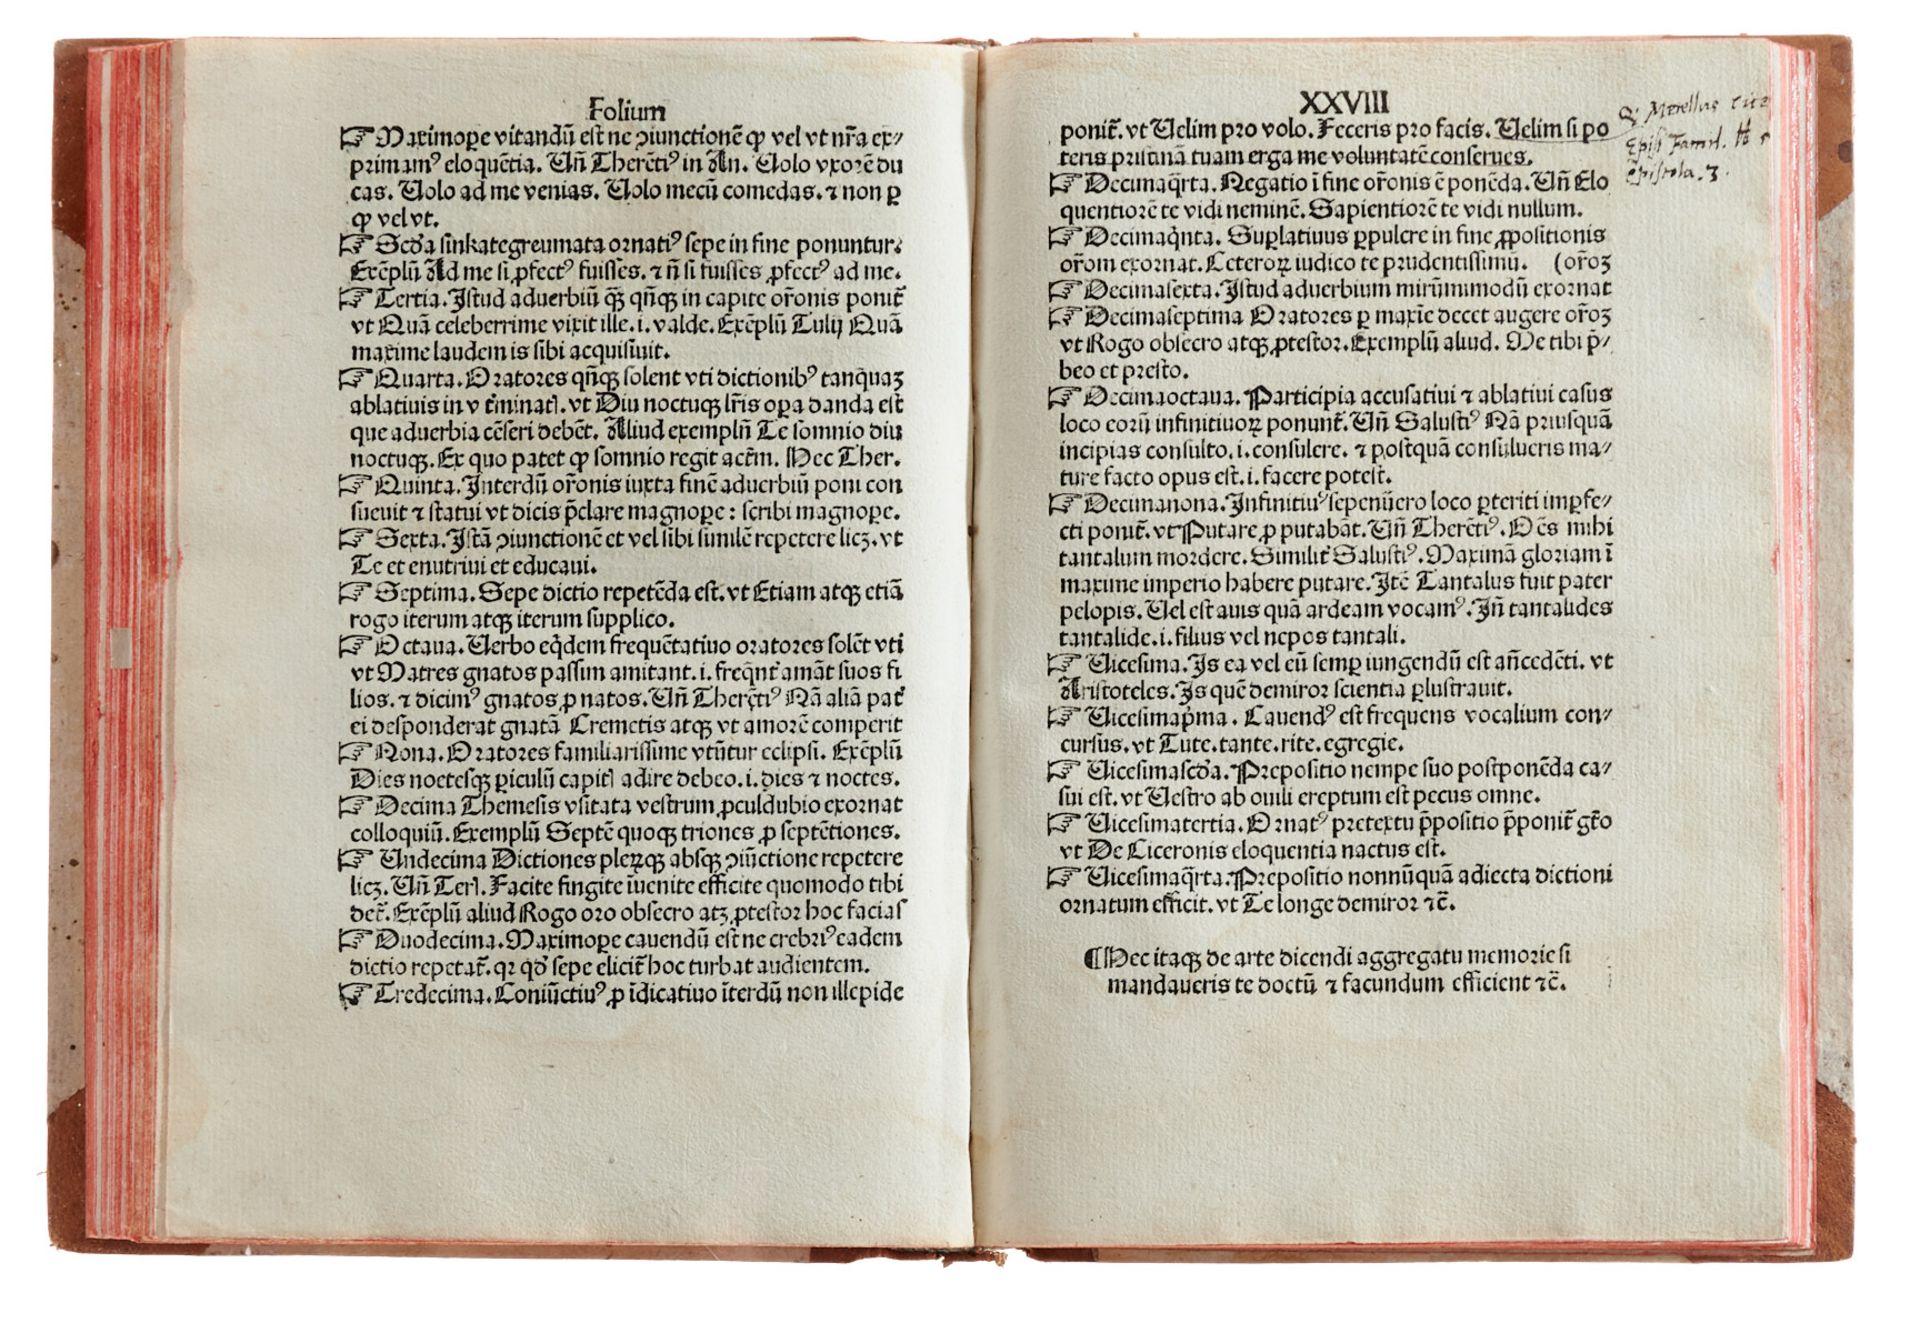 Folium
☞Maximope vitandū est ne ꝯiunctionē ꝙ vel vt nr̄a ex⸗
primamꝰ eloquētia. Un̄ Therētiꝰ in An. Uolo vxorē du
cas. Uolo ad me venias. Uolo mecū comedas. ⁊ non ꝑ
ꝙ vel vt.
☞Scd̄a sinkategreumata ornatiꝰ sepe in fine ponuntur.
Exēplū Ad me si ꝓfectꝰ fuisses. ⁊ n̄ si fuisses ꝓfectꝰ ad me.
☞Tertia. Istud aduerbiū q̄ꝫ qn̄qꝫ in capite or̄onis ponit̄
vt Quā celeberrime vixit ille. i. valde. Exēplū Tulij Quā
maxime laudem is sibi acquisiuit.
☞Quarta. Oratores qn̄qꝫ solent vti dictionibꝰ tanq̄uaꝫ
ablatiuis in v t̄minatꝭ. vt Diu noctuqꝫ lr̄is oꝑa danda est
que aduerbia cēseri debēt. Aliud exemplū Te somnio diu
noctuqꝫ. Ex quo patet ꝙ somnio regit actm̄. Hec Ther.
☞Quinta. Interdū or̄onis iuxta finē aduerbiū poni con
sueuit ⁊ statui vt dicis p̄clare magnope : scribi magnope.
☞Sexta. Istā ꝯiunctionē et vel sibi similē repetere licꝫ. vt
Te et enutriui et educaui.
☞Septima. Sepe dictio repetēda est. vt Etiam atqꝫ etiā
rogo iterum atqꝫ iterum supplico.
☞Octaua. Uerbo eq̄dem frequētatiuo oratores solēt vti
vt Matres gnatos passim amitant. i. freq̄nt̄ amāt suos fi
lios. ⁊ dicimꝰ gnatos ꝓ natos. Un̄ Therētiꝰ Nā aliā pat̄
ei desponderat gnatā Cremetis atqꝫ vt amorē comperit
☞Nona. Oratores familiarissime vtūtur eclipsi. Exēplū
Dies noctesqꝫ ꝑiculū capitꝭ adire debeo. i. dies ⁊ noctes.
☞Decima Themesis vsitata vestrum ꝓculdubio exornat
colloquiū. Exemplū Septē quoqꝫ triones ꝓ septētiones.
☞Undecima Dictiones pleꝝqꝫ absqꝫ ꝯiūctione repetere
licꝫ. Un̄ Terꝭ. Facite fingite īuenite efficite quomodo tibi
det̄. Exēplū aliud Rogo oro obsecro atꝫ ꝓtestor hoc facias
☞Duodecima. Maximope cauendū est ne crebriꝰ eadem
dictio repetat̄. qꝛ qd̄ sepe elicit̄ hoc turbat audientem.
☞Tredecima. Coniūctiuꝰ ꝓ īdicatiuo īterdū non illepide
XXVIII
ponit̄. vt Uelim pro volo. Feceris pro facis. Uelim si po
teris pristinā tuam erga me voluntatē conserues.
☞Decimaq̄rta. Negatio ī fine or̄onis ē ponēda. Un̄ Elo
quentiorē te vidi neminē. Sapientiorē te vidi nullum.
☞Decimaq̄nta. Suꝑlatiuus ꝑpulcre in fine ꝓpositionis
or̄om exornat. Ceteroꝝ iudico te prudentissimū. (or̄oꝫ
☞Decimasexta. Istud aduerbium mirūmmodū exornat
☞Decimaseptima Oratores ꝑ maxīe decet augere or̄oꝫ
vt Rogo obsecro atqꝫ ꝓtestor. Exemplū aliud. Me tibi p̄⸗
beo et presto.
☞Decimaoctaua. Participia accusatiui ⁊ ablatiui casus
loco eorū infinitiuoꝝ ponunt̄. Un̄ Salustiꝰ Nā priusquā
incipias consulto. i. consulere. ⁊ postquā consulueris ma⸗
ture facto opus est. i. facere potest.
☞Decimanona. Infinitiuꝰ sepenūero loco ꝑteriti imꝑfe⸗
cti ponit̄. vt Putare ꝓ putabāt. Un̄ Therētiꝰ. Oēs mihi
tantalum mordere. Similit̄ Salustiꝰ. Maximā gloriam ī
maxime imperio habere putare. Itē Tantalus fuit pater
pelopis. Uel est auis quā ardeam vocamꝰ. In̄ tantalides
tantalide. i. filius vel nepos tantali.
☞Uicesima. Is ea vel eū semꝑ iungendū est an̄cedēti. vt
Aristoteles. Is quē demiror scientia ꝑlustrauit.
☞Uicesimap̄ma. Cauendꝰ est frequens vocalium con⸗
cursus. vt Tute. tante. rite. egregie.
☞Uicesimascd̄a. Prepositio nempe suo postponēda ca⸗
sui est. vt Uestro ab ouili ereptum est pecus omne.
☞Uicesimatertia. Ornatꝰ pretextu p̄positio p̄ponit̄ gt̄o
vt De Ciceronis eloquentia nactus est.
☞Uicesimaq̄rta. Prepositio nonnūquā adiecta dictioni
ornatum efficit. vt Te longe demiror ⁊c̄.
¶Hec itaqꝫ de arte dicendi aggregatu memorie si
mandaueris te doctū ⁊ facundum efficient ⁊c̄.
Q. Metellus
Epist Famil.
Epistola. 3.